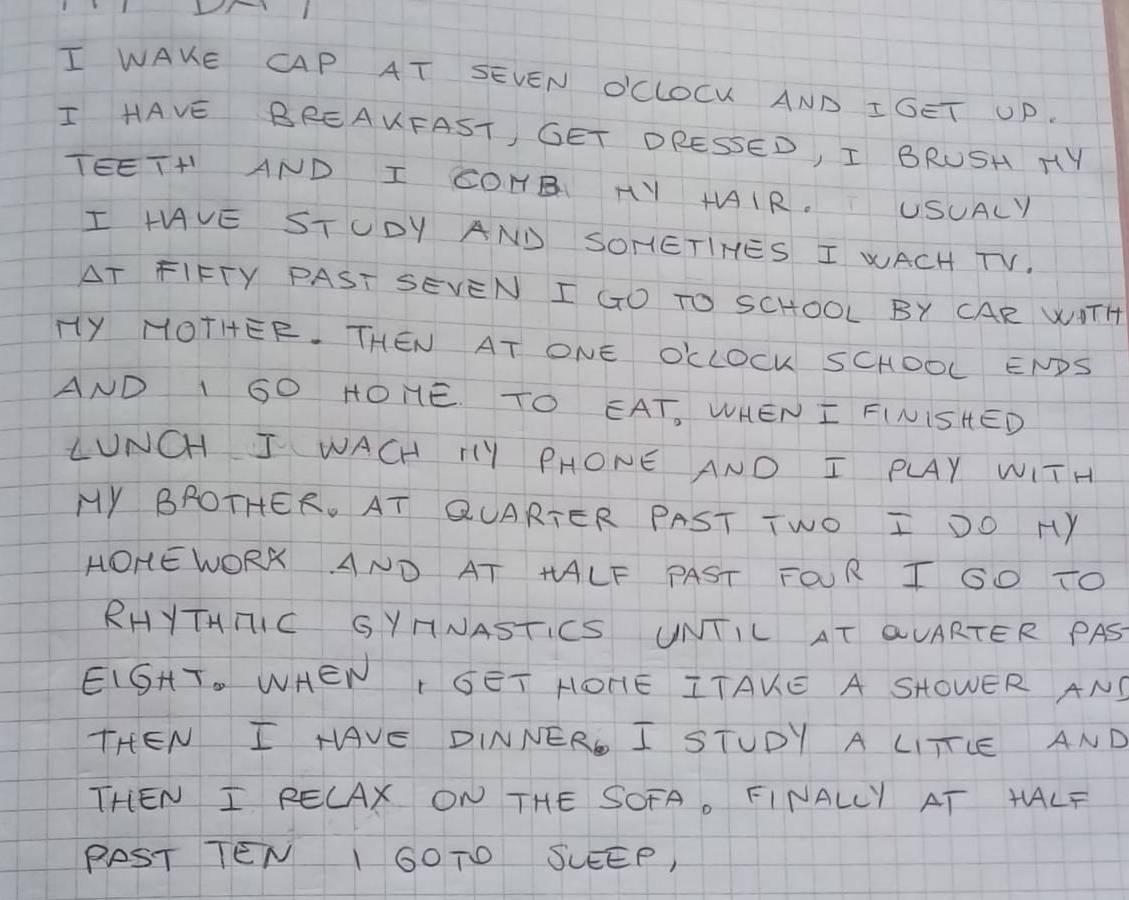 MY DAY
I WAKE CAP AT SEVEN O'CLOCK AND I GET UP.
I HAVE BREAKFAST, GET DRESSED, I BRUSH MY
TEETH AND I COMB MY HAIR. USUALY
I HAVE STUDY AND SOMETIMES I WACH TV.
AT FIFTY PAST SEVEN I GO TO SCHOOL BY CAR WITH
MY MOTHER. THEN AT ONE O'CLOCK SCHOOL ENDS
AND I GO HOME TO EAT. WHEN I FINISHED
LUNCH I WACH MY PHONE AND I PLAY WITH
MY BROTHER. AT QUARTER PAST TWO I DO MY
HOMEWORK AND AT HALF PAST FOUR I GO TO
RHYTHMIC GYMNASTICS UNTIL AT QUARTER PAS
EIGHT. WHEN I GET HOME I TAKE A SHOWER AND
THEN I HAVE DINNER. I STUDY A LITTLE AND
THEN I RELAX ON THE SOFA. FINALLY AT HALF
PAST TEN I GO TO SLEEP,